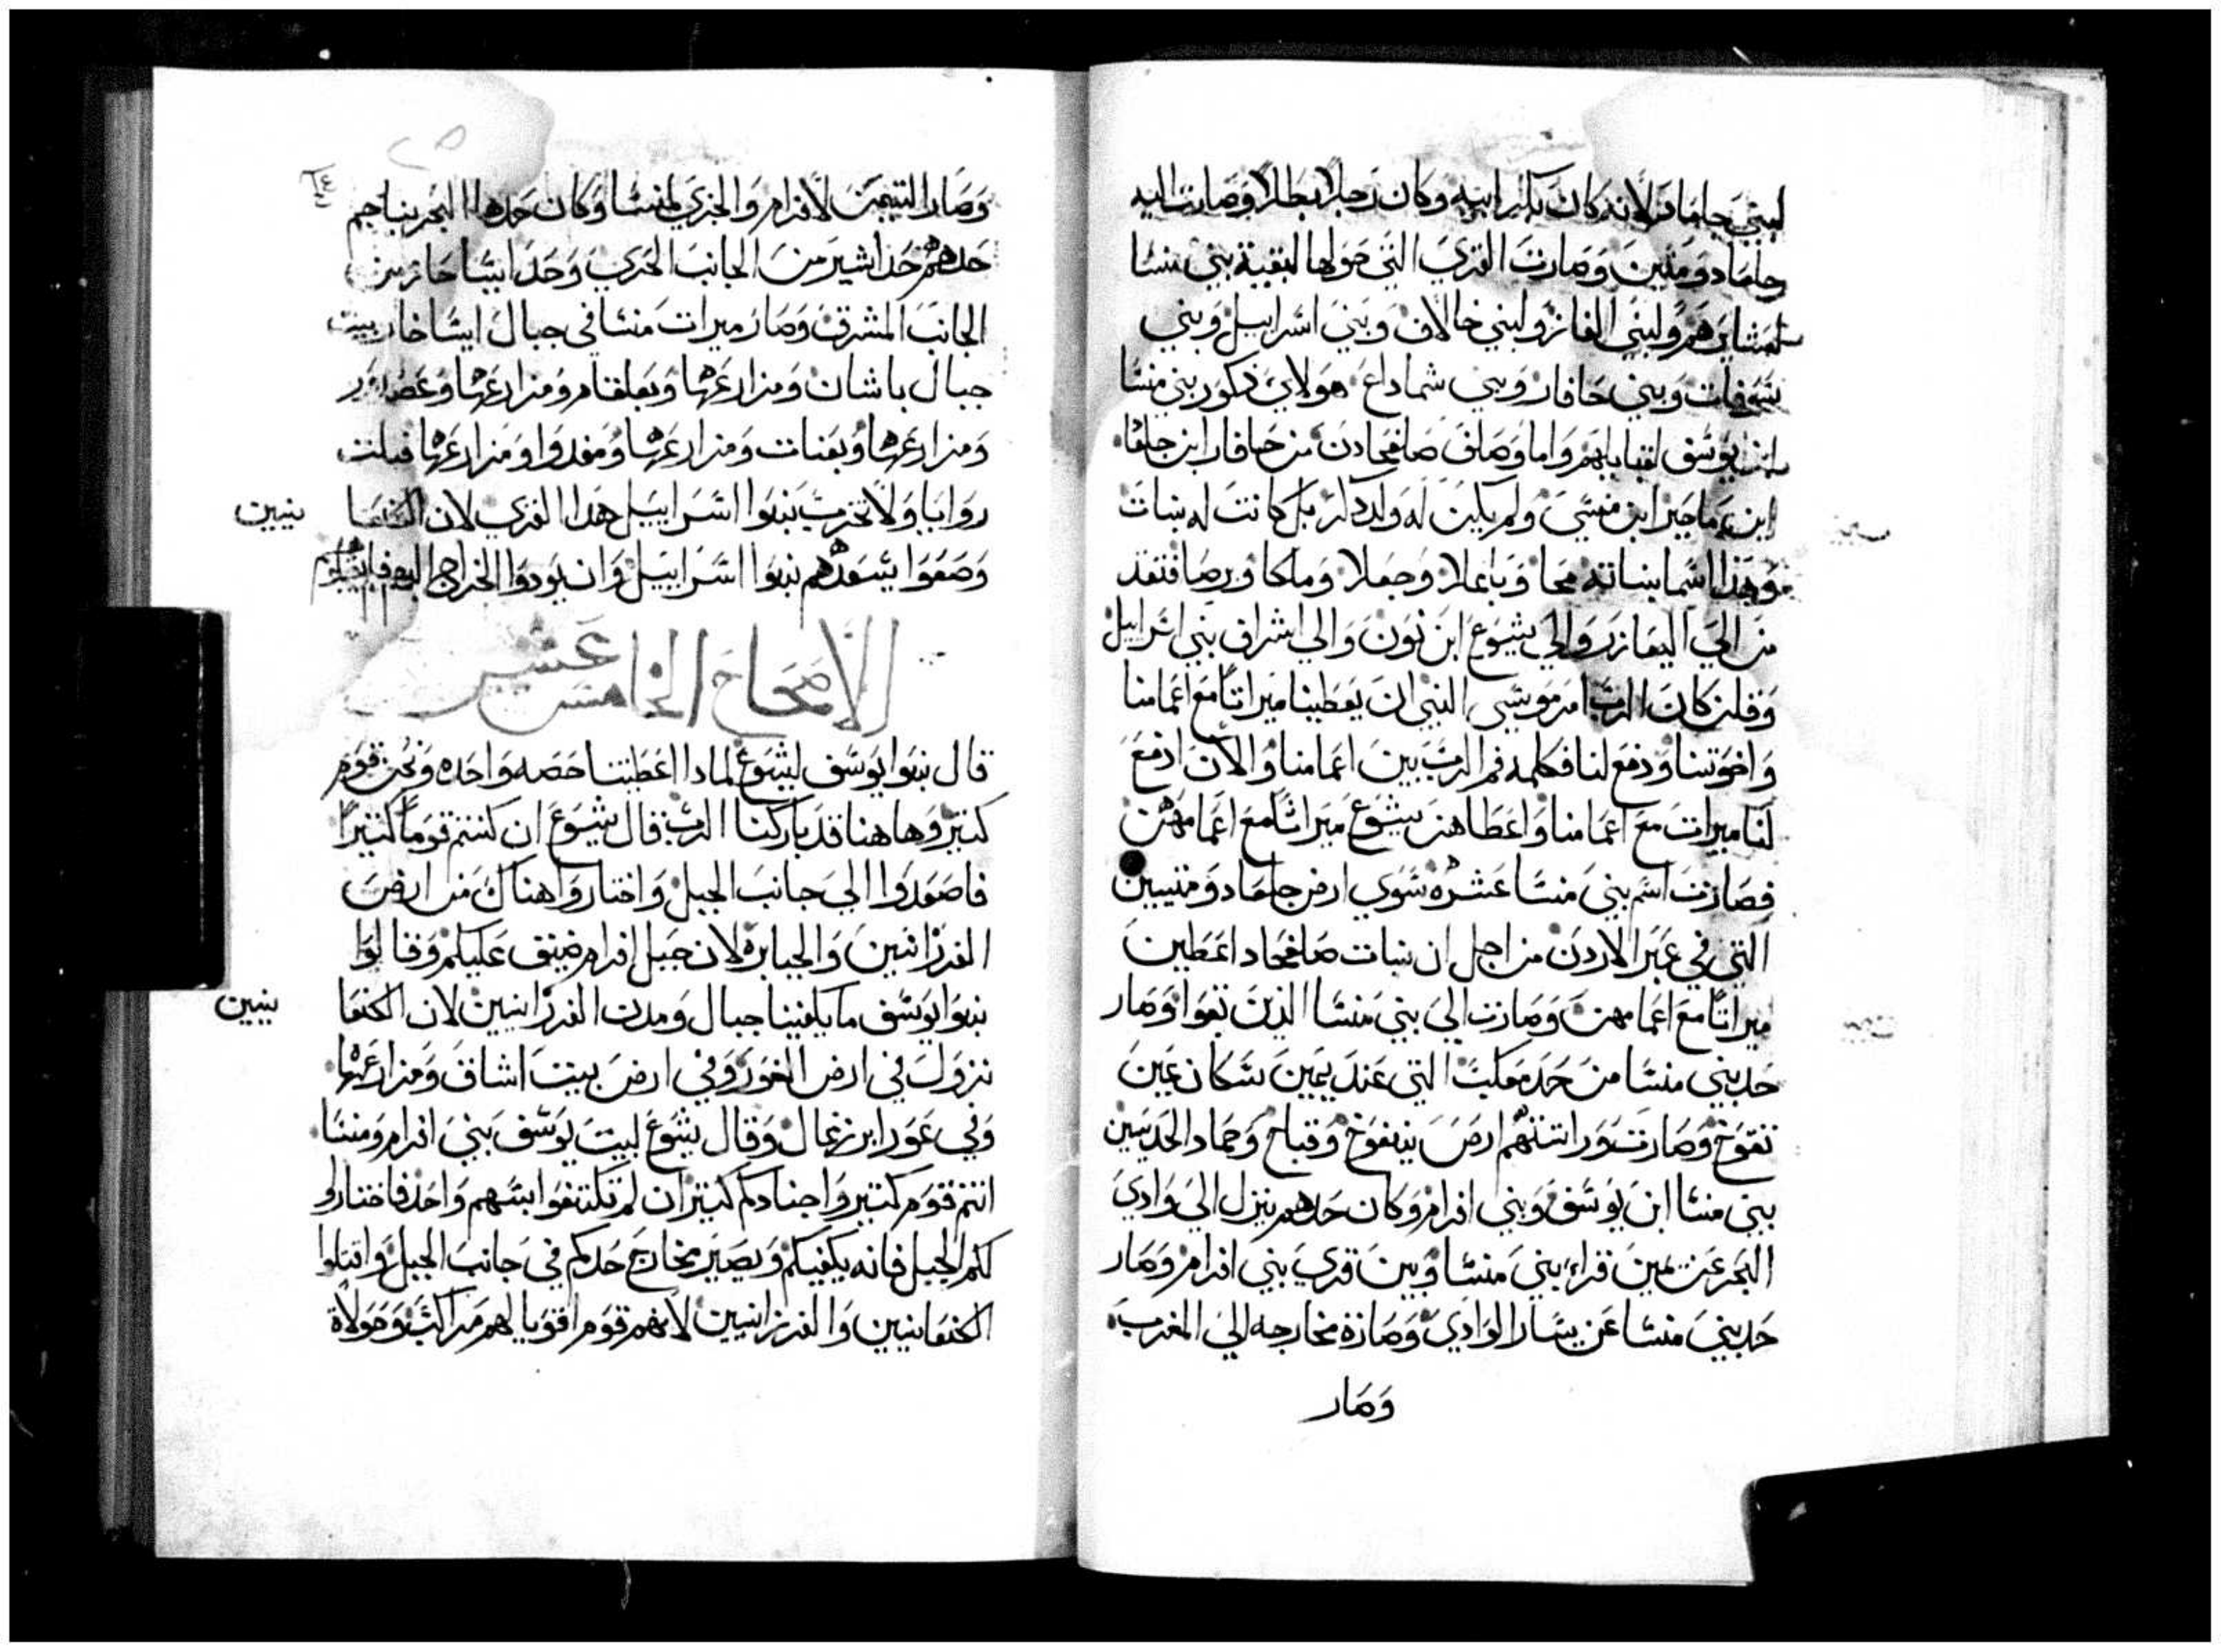 لبني جلعاد لانه كان بكر ابيه وكان رجلاً بطلاً وصارت اليه
جلعاد ومتنين وصارت القري التي حولها لبقية بني منسا
لعشايرهم ولبني الفازر ولبني خالاق وبني اسراييل وبني
شوفات وبني حافار وبني شماداع هولاي دكور بني منسا
ابن يوسف لقبايلهم واما وصلف صلفحادن من حافار ابن جلعاد
ابن ماجير ابن منسي ولم يكن له ولد دكر بل كانت له بنات
وهذا اسما بناته محا وباعلا وجعلا وملكا ورصا فتقد
من الي اليعازر والي يشوع ابن نون والي اشراف بني اسراييل
وقلن كان الرب امر موسي النبي ان يعطينا ميراتاً مع اعمامنا
واخوتنا ودفع لنا فكلمه فم الرب بين اعمامنا والان ادفع
لنا ميرات مع اعمامنا واعطاهن يشوع ميراتاً مع اعمامهن
فصارت اسم بني منسا عشره سوي ارض جلعاد ومتنيين
التي في عبر الاردن من اجل ان بنات صلفحاد اعطين
ميراتاً مع اعمامهن وصارت الي بني منسا الذين بقوا وصار
حد بني منسا من حد معكبت التي عند يمين سكان عين
تفوح وصارت وراتتهم ارض ينفوح وقباح وحماد الحديين
بني منسا ابن يوسف وبني افرام وكان حدهم ينزل الي وادي
البحر عن يمين قراء بني منسا وبين قري بني افرام وصار
حد بني منسا عن يسار الوادي وصارة مخارجه الي المغرب
وصار
٦٤
وصار التيمن لافرام والجزي لمنسا وكان حدهما البحر بناحم
حدهم حد اشير من الجانب الحري وحد ايساحار من
الجانب المشرق وصار ميرات منسا في جبال ايساخار بيت
جبال باشان ومزارعها وبعلقام ومزارعها وعصادور
ومزارعها وبعنات ومزارعها ومغدوا ومزارعها
روايا ولا تخرب بنوا اسراييل هدا القري لان الكنعا
نيين
وصعوا يسعدهم بنوا اسراييل وان يودوا الخراج اليهم
الاصحاح الخامس عشر
قال بنوا يوسف ليشوع لمادا اعطيتنا حصه واحده ونحن قوم
كتير وها هنا قد باركنا الرب قال يشوع ان كنتم قوماً كتيراً
فاصعدوا الي جانب الجبل واختاروا هناك من ارض
الفرزانيين والجبابره لان جبل افرام ضيق عليكم وقالوا
بنوا يوسف ما يكفينا جبال ومدن الفرزانيين لان الكنعا
نيين
نزول في ارض الغور وفي ارض بيت اشاف ومزارعها
وفي غور ابرزغال وقال يشوع لبيت يوسف بني افرام ومنسا
انتم قوم كتير واجنادكم كتير ان لم تكتفوا بسهم واحد فاختاروا
لكم الجبل فانه يكفيكم ويصير مخارج حدكم في جانب الجبل واقتلوا
الكنعانيين والفرزانيين لانهم قوم اقويا لهم مراكب وحولاة